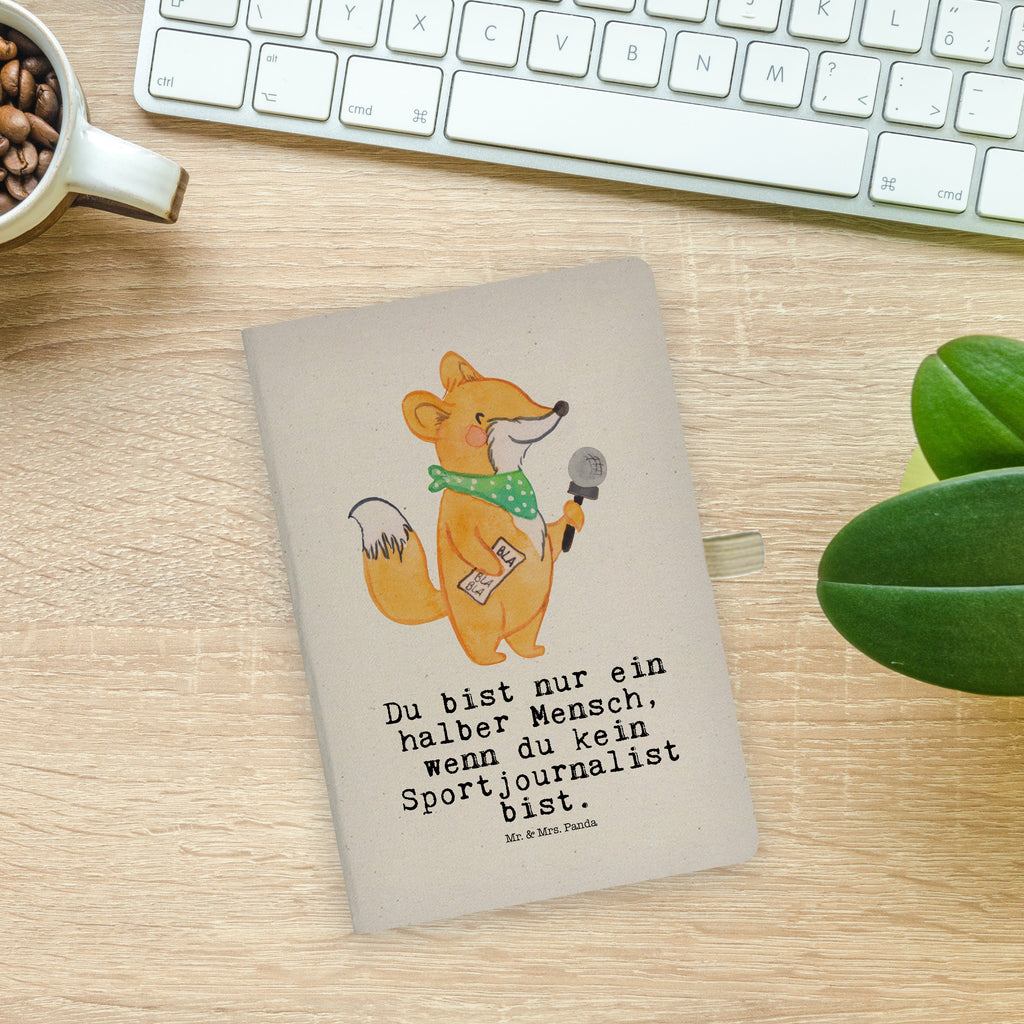 Y X C V B N M K L
ctrl alt cmd ⌘ ? < : > ⌘ cmd
BLA
BLA
BLA
Du bist nur ein
halber Mensch,
wenn du kein
Sportjournalist
bist.
Mr. & Mrs. Panda